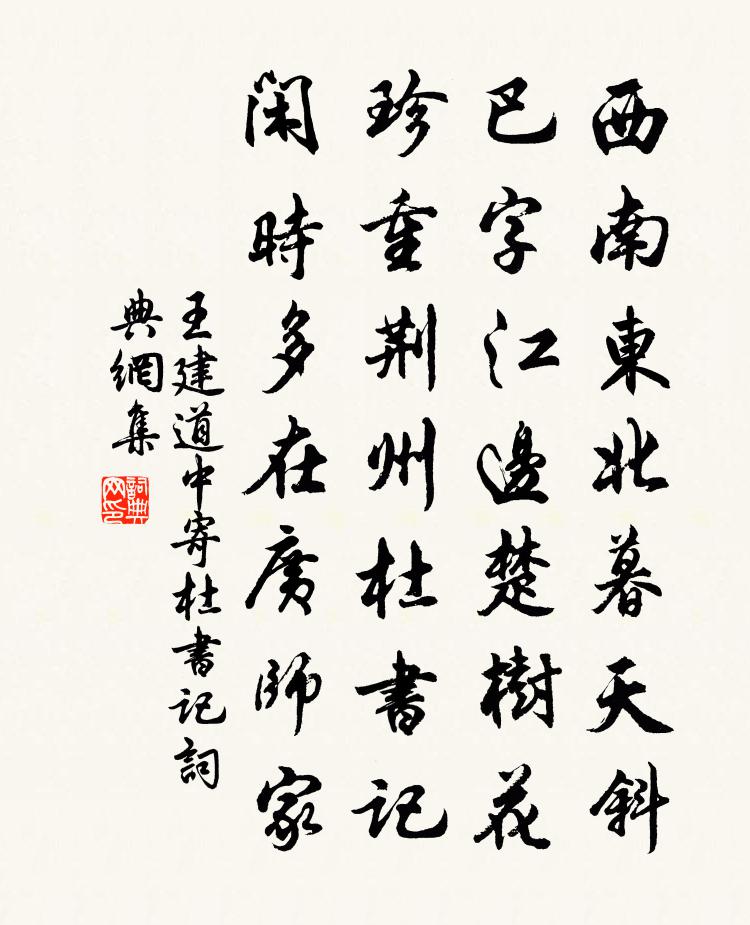 西南東北暮天斜
巴字江邊楚樹花
珍重荆州杜書記
閑時多在廣師家
王建道中寄杜書記詞
典網集
詞典
网印